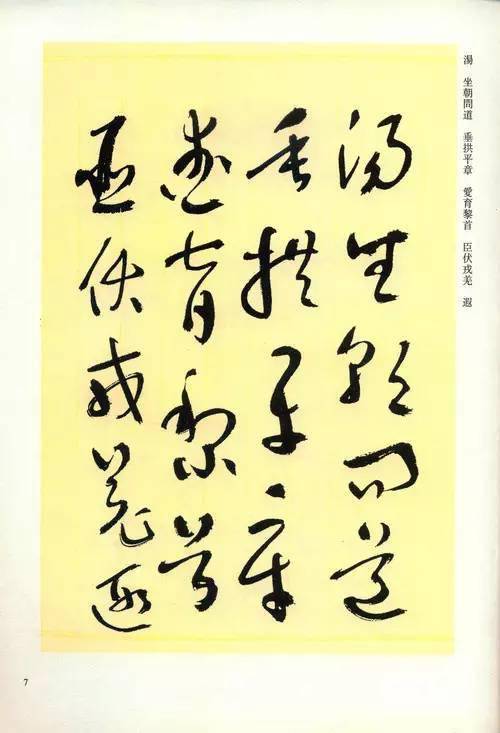 湯 坐朝問道 垂拱平章 愛育黎首 臣伏戎羌 遐
湯坐朝問道
垂拱平章
愛育黎首
臣伏戎羌遐
7